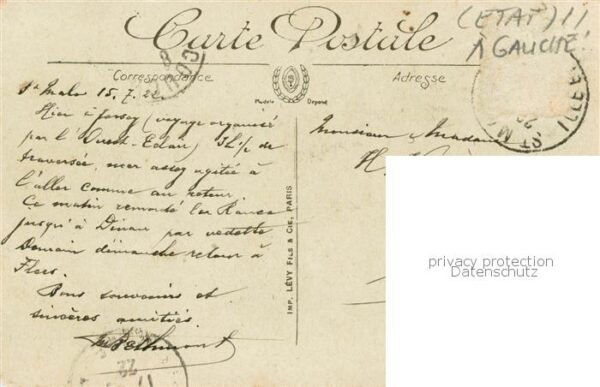 (ETAT) //
À GAUCHE!
Carte Postale
Correspondance
Adresse
Modèle Déposé
St Malo 15.7.22
Hier à Jersey (voyage organisé
par l'Ouest-Eclair) 3h ½ de
traversée, mer assez agitée à
l'aller comme au retour
Ce matin remonté la Rance
jusqu'à Dinan par vedette
Demain dimanche retour à
Flers.
Bons souvenirs et
sincères amitiés
Monsieur Madame
IMP. LÉVY FILS & CIE, PARIS
ST M
ILLE E
22
privacy protection
Datenschutz